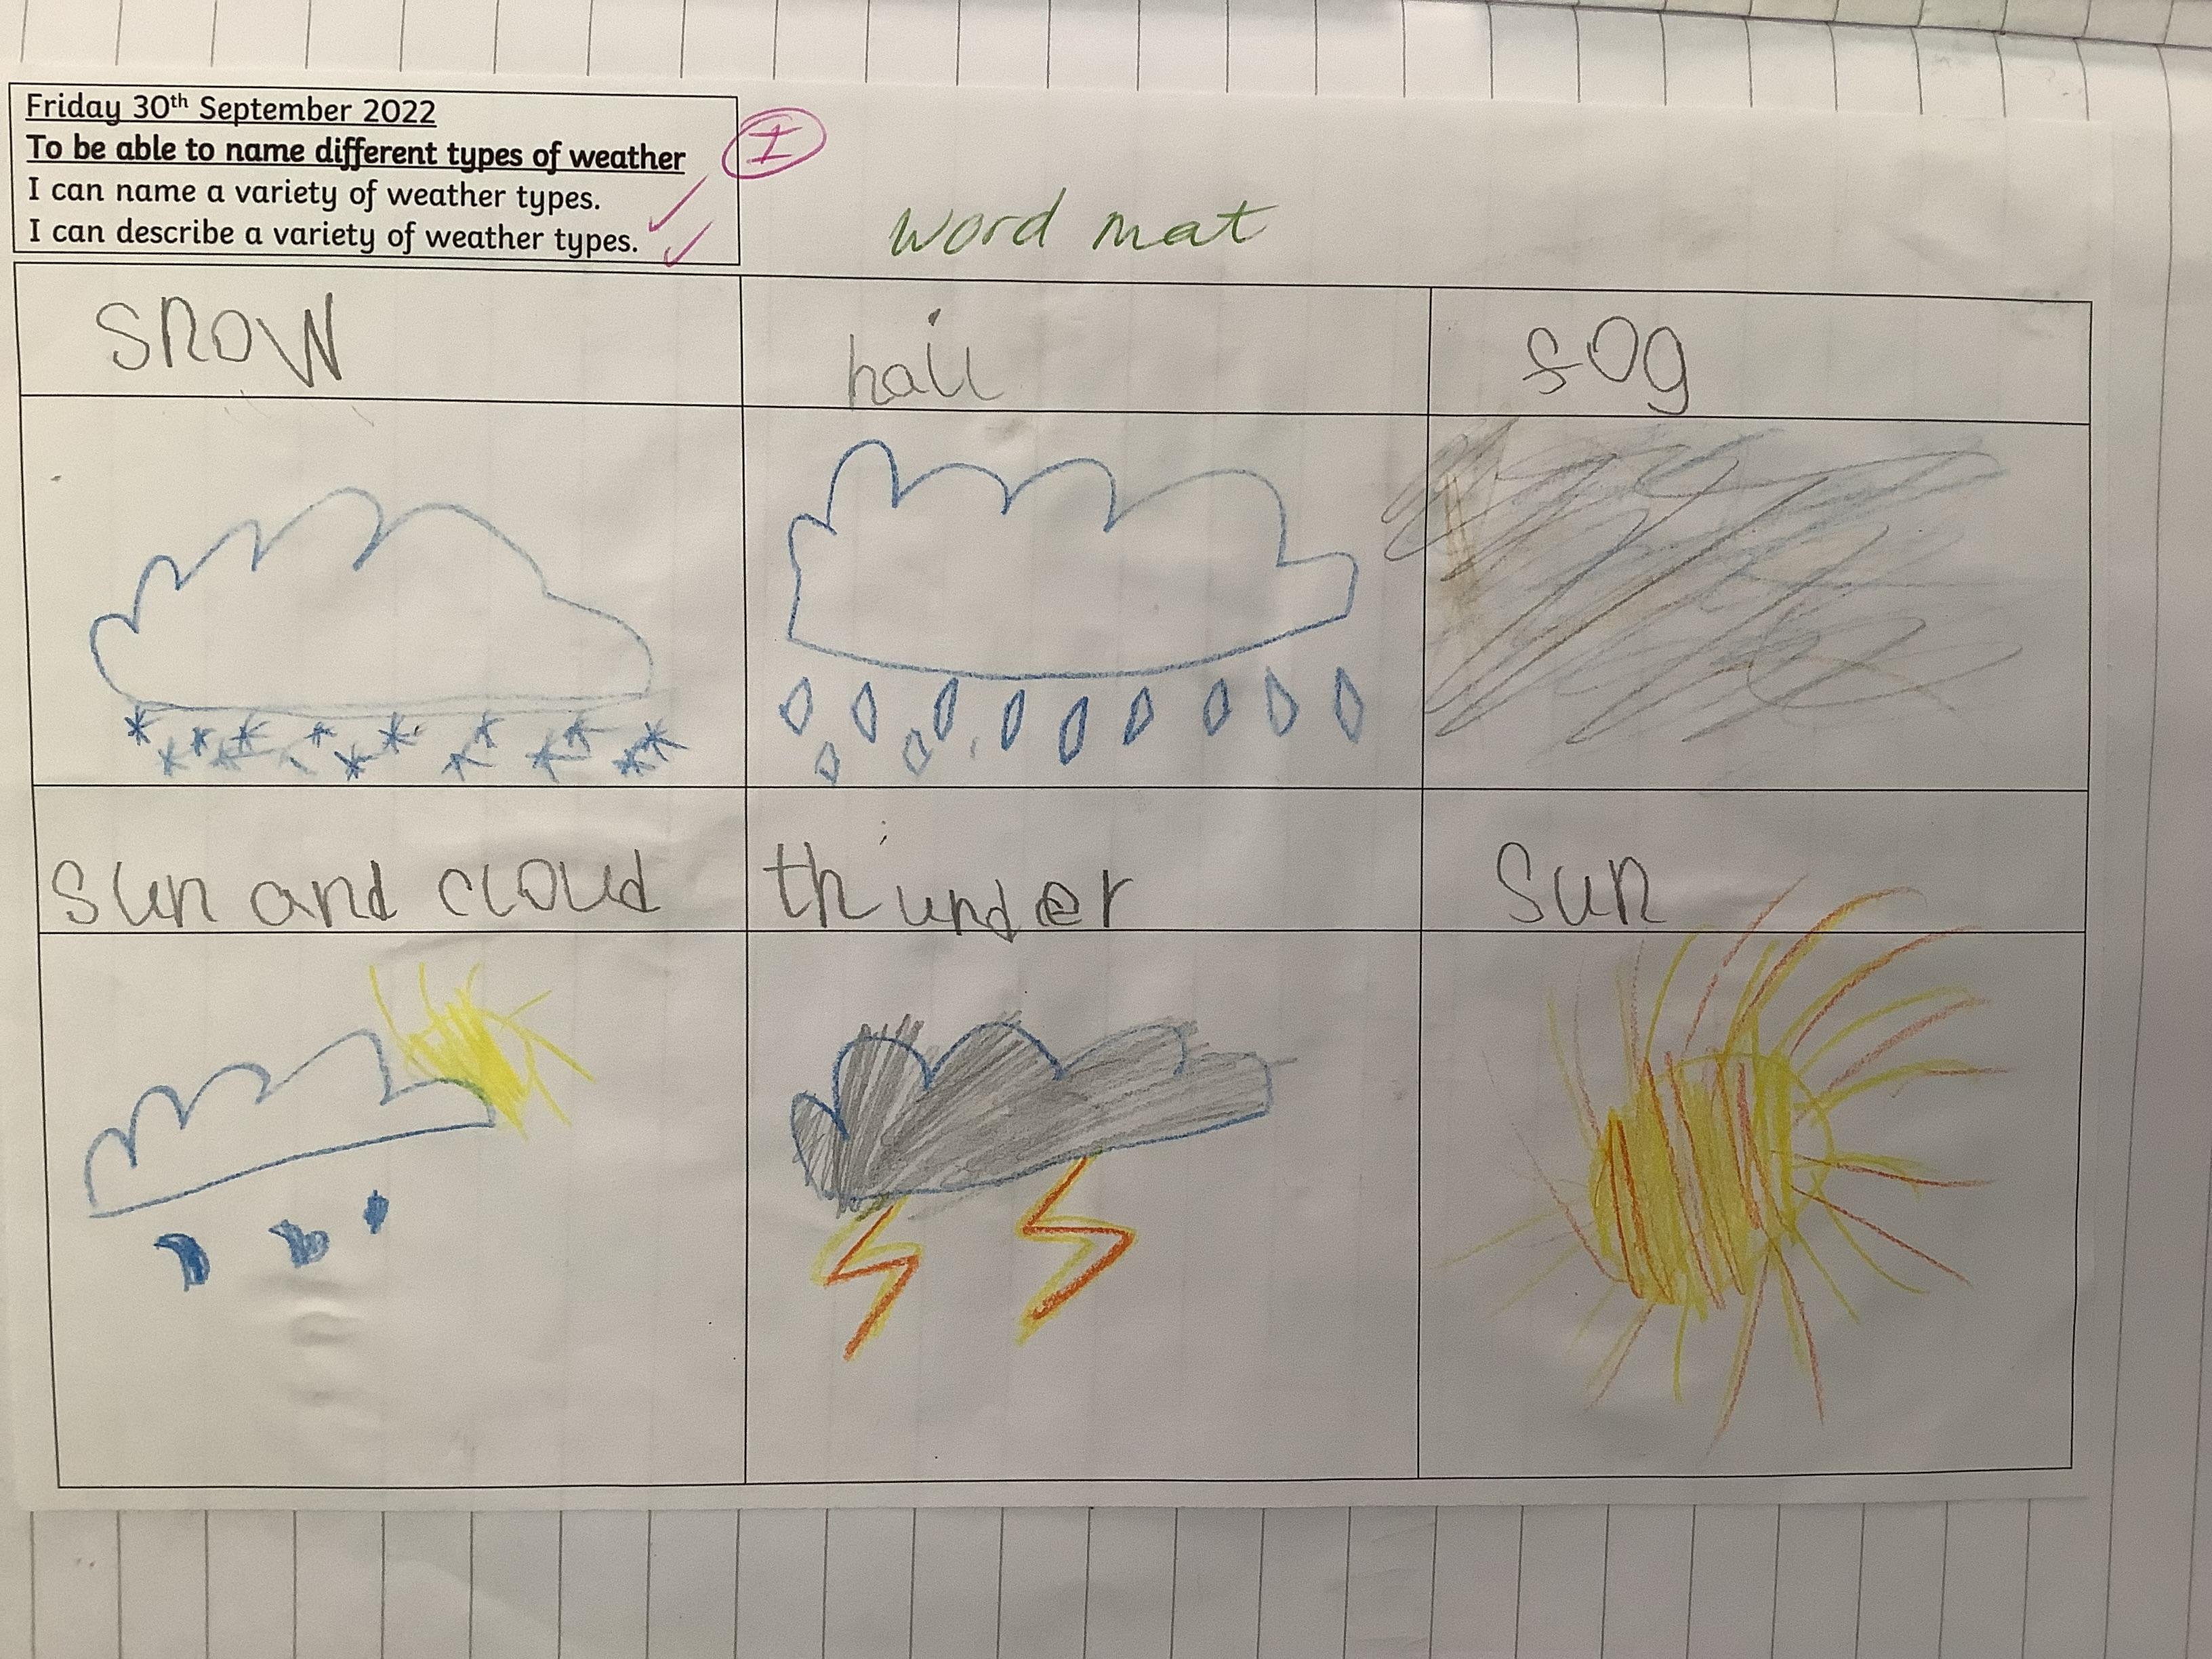 Friday 30th September 2022
To be able to name different types of weather
I can name a variety of weather types.
I can describe a variety of weather types.
I
word mat
snow
hail
fog
sun and cloud
thunder
sun